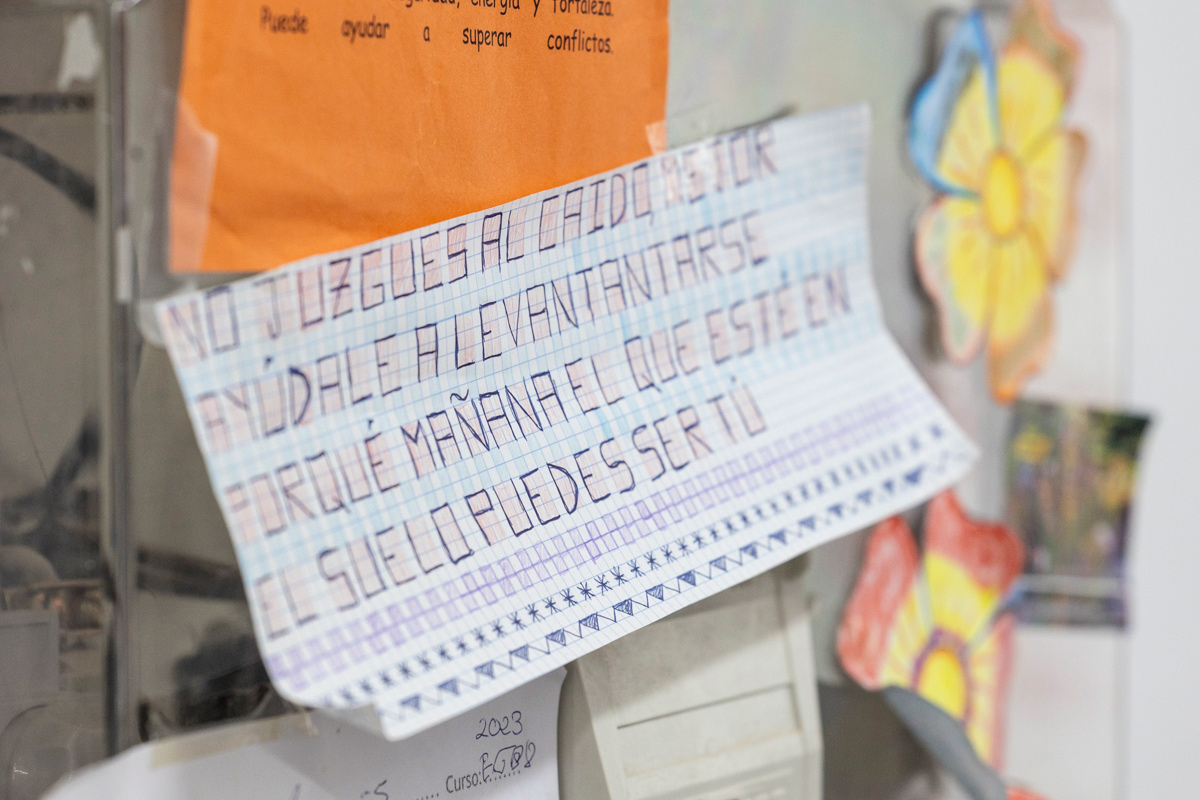 energía y fortaleza.
Puede ayudar a superar conflictos.
NO JUZGUES AL CAIDO, MEJOR
AYÚDALE A LEVANTANTARSE
PORQUÉ MAÑANA EL QUE ESTÉ EN
EL SUELO PUEDES SER TÚ
2023
Curso: